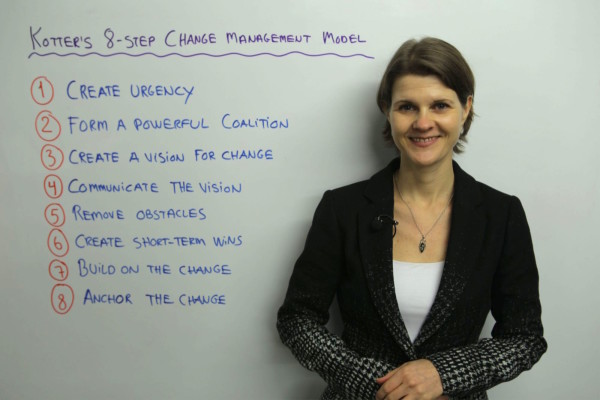 KOTTER'S 8-STEP CHANGE MANAGEMENT MODEL
1 CREATE URGENCY
2 FORM A POWERFUL COALITION
3 CREATE A VISION FOR CHANGE
4 COMMUNICATE THE VISION
5 REMOVE OBSTACLES
6 CREATE SHORT-TERM WINS
7 BUILD ON THE CHANGE
8 ANCHOR THE CHANGE